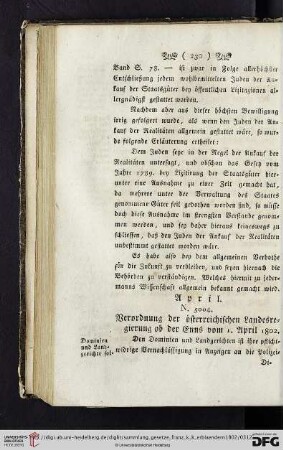 ( 230 )
Band S. 78. — ist zwar in Folge allerhöchster
Entschließung jedem wohlbemittelten Juden der An-
kauf der Staatsgüter bey öffentlichen Lizitazionen al-
lergnädigst gestattet worden.
Nachdem aber aus dieser höchsten Bewilligung
irrig gefolgert wurde, als wenn den Juden der An-
kauf der Realitäten allgemein gestattet wäre, so wur-
de folgende Erläuterung ertheilet:
Dem Juden seye in der Regel der Ankauf der
Realitäten untersagt, und obschon das Gesetz vom
Jahre 1789. bey Lizitirung der Staatsgüter hier-
unter eine Ausnahme zu einer Zeit gemacht hat,
da mehrere unter der Verwaltung des Staates
genommene Güter feil gebothen worden sind, so müsse
doch diese Ausnahme im strengsten Verstande genom-
men werden, und sey daher hieraus keineswegs zu
schliessen, daß den Juden der Ankauf der Realitäten
unbestimmt gestattet worden wäre.
Es habe also bey dem allgemeinen Verbothe
für die Zukunft zu verbleiben, und seyen hiernach die
Behörden zu verständigen. Welches hiermit zu jeder-
manns Wissenschaft allgemein bekannt gemacht wird.
April.
N. 5004.
Verordnung der österreichischen Landesre-
gierung ob der Enns vom 1. April 1802.
Dominien
und Land-
gerichte sol-
Den Dominien und Landgerichten ist ihre pflicht-
widrige Vernachlässigung in Anzeigen an die Polizei-
Di-
UNIVERSITÄTS-
BIBLIOTHEK
HEIDELBERG
DFG